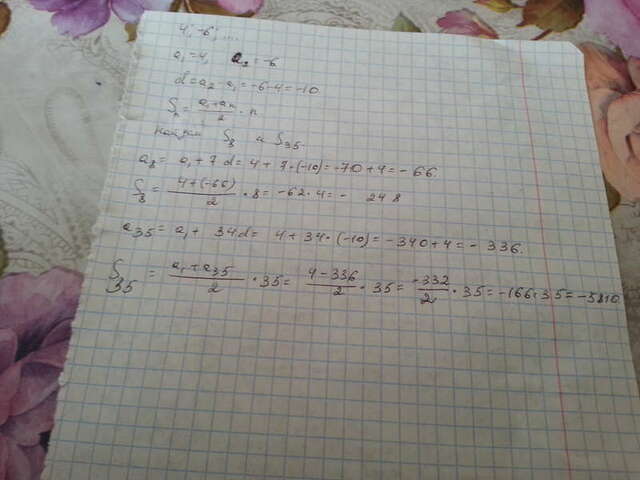 4; -6; ...
a₁=4, a₂=-6
d=a₂-a₁=-6-4=-10
Sₙ=(a₁+aₙ)/2·n
Найдём S₈ и S₃₅.
a₈=a₁+7d=4+7·(-10)=-70+4=-66.
S₈=(4+(-66))/2·8=-62·4=-248
a₃₅=a₁+34d=4+34·(-10)=-340+4=-336.
S₃₅=(a₁+a₃₅)/2·35=(4-336)/2·35=-332/2·35=-166·35=-5810